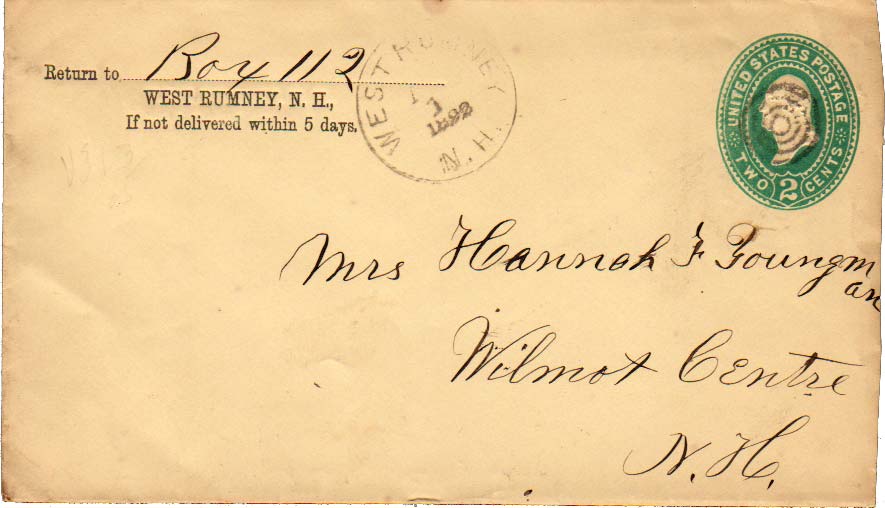 Return to Box 112
WEST RUMNEY, N. H.,
If not delivered within 5 days.
WEST RUMNEY N.H.
1
UNITED STATES POSTAGE
TWO 2 CENTS
Mrs Hannah F Youngm
an
Wilmot Centre
N.H.